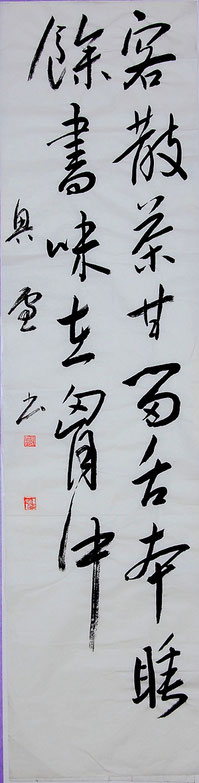 客散茶甘留舌本睡
餘書味在胸中
书